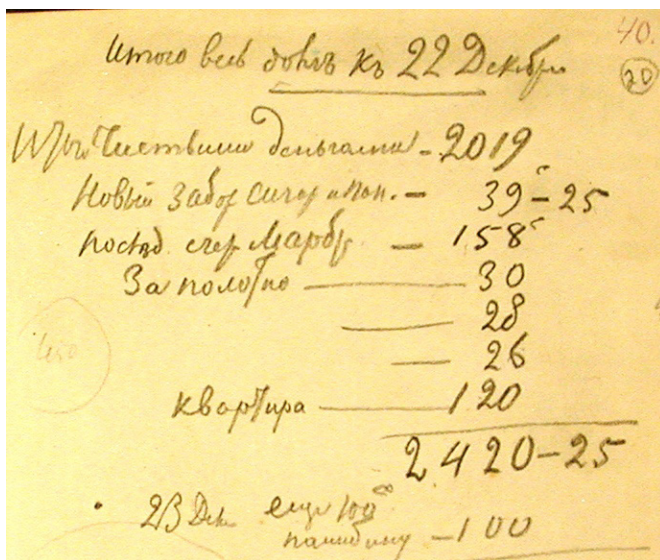 40.
20
Итого весь долгъ къ 22 Декабря
Чистыми деньгами - 2019
Новый забор сигар и пап. - 39 - 25
- 158
За полотно - 30
- 28
- 26
квартира - 120
2420-25
23 Дек еще 100
- 100